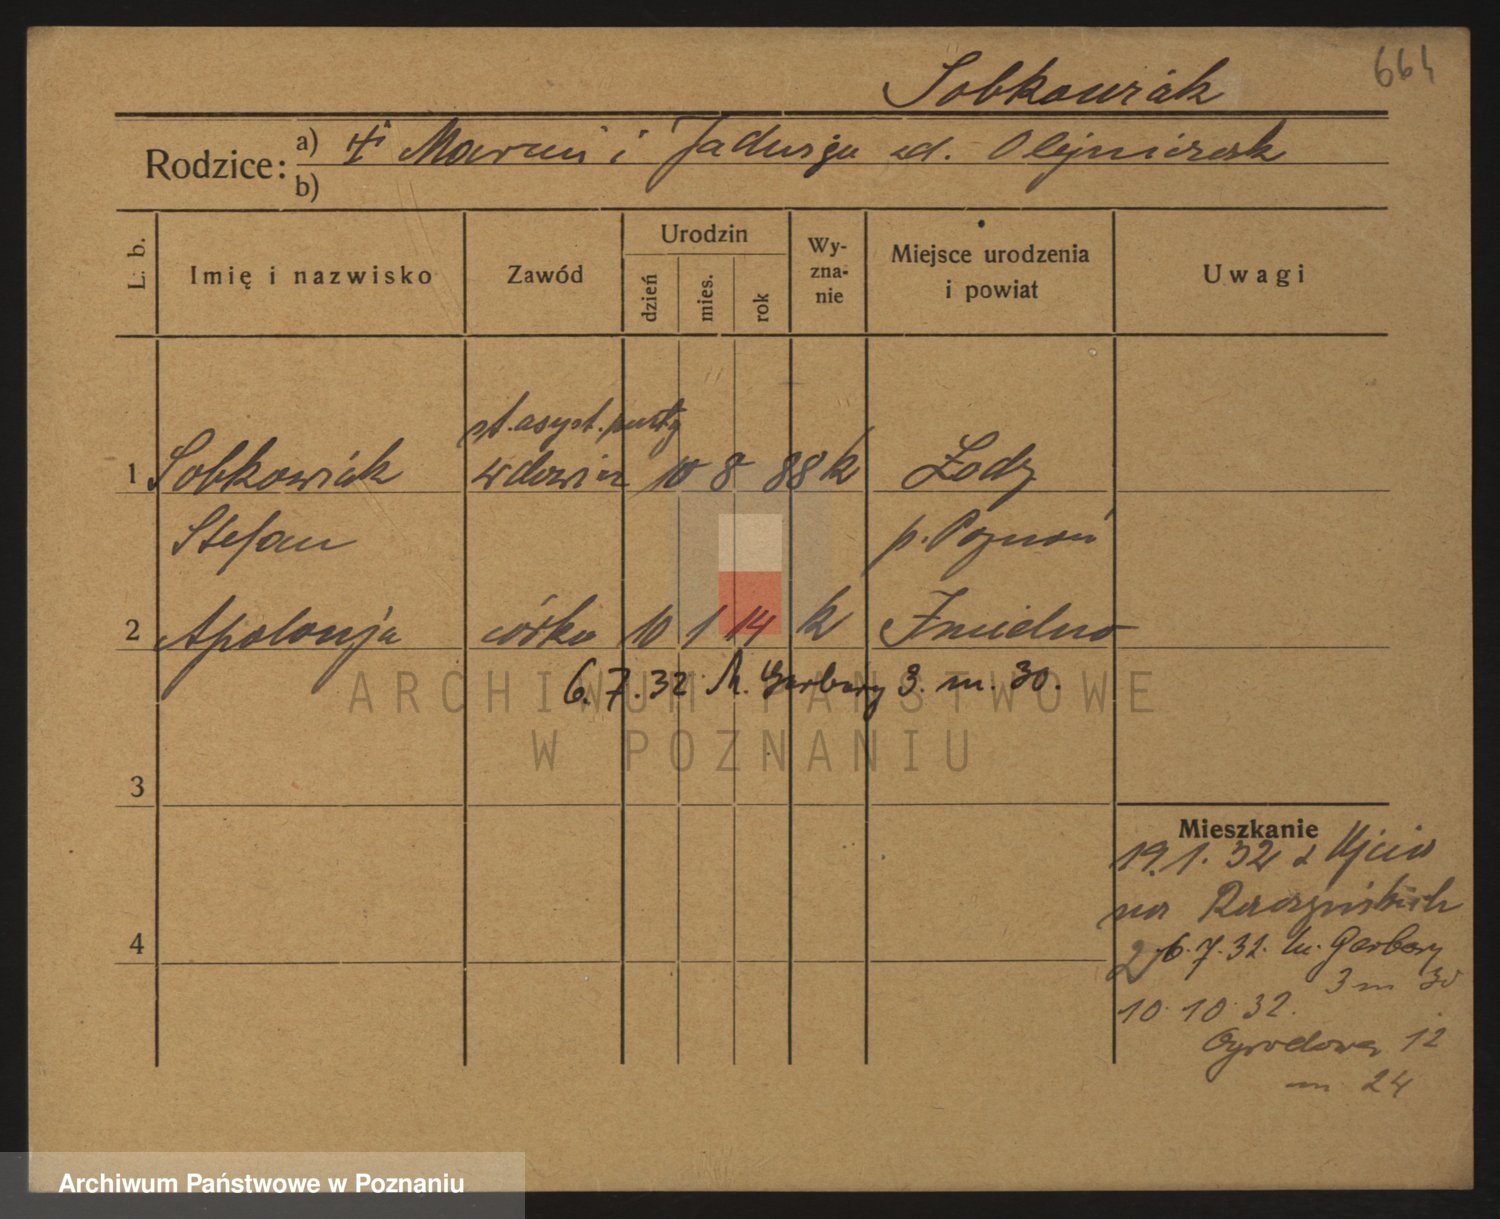 664
Sobkowiak
Rodzice: a) Marcin i Jadwiga zd. Olejniczak
b)
L. b.
Imię i nazwisko
Zawód
Urodzin
dzień
mies.
rok
Wy-
zna-
nie
Miejsce urodzenia
i powiat
Uwagi
st. asyst. poczty
1 Sobkowiak wdowiec 10 8 88 k Łodz
Stefan p. Poznań
2 Apolonja córka 10 1 14 k
6.7.32 Garbary 3. m. 30.
ARCHIWUM PAŃSTWOWE
W POZNANIU
3
Mieszkanie
19.1.32 z Ujścia
na Raczyńskich
4
2 6.7.32. Garbary
3 m 30
10.10.32.
Ogrodowa 12
m 24
Archiwum Państwowe w Poznaniu